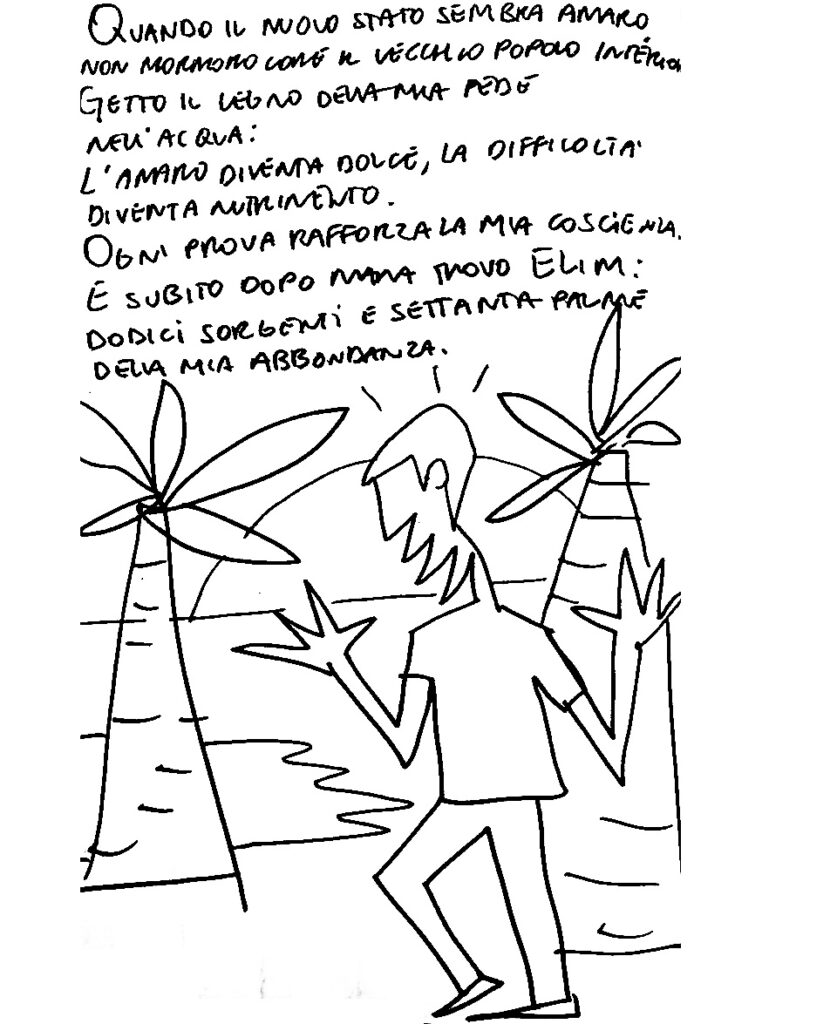 QUANDO IL NUOVO STATO SEMBRA AMARO
NON MORMORO COME IL VECCHIO POPOLO INTERIOR
GETTO IL LEGNO DELLA MIA FEDE
NELL'ACQUA:
L'AMARO DIVENTA DOLCE, LA DIFFICOLTA'
DIVENTA NUTRIMENTO.
OGNI PROVA RAFFORZA LA MIA COSCIENZA.
E SUBITO DOPO MARA TROVO ELIM:
DODICI SORGENTI E SETTANTA PALME
DELLA MIA ABBONDANZA.